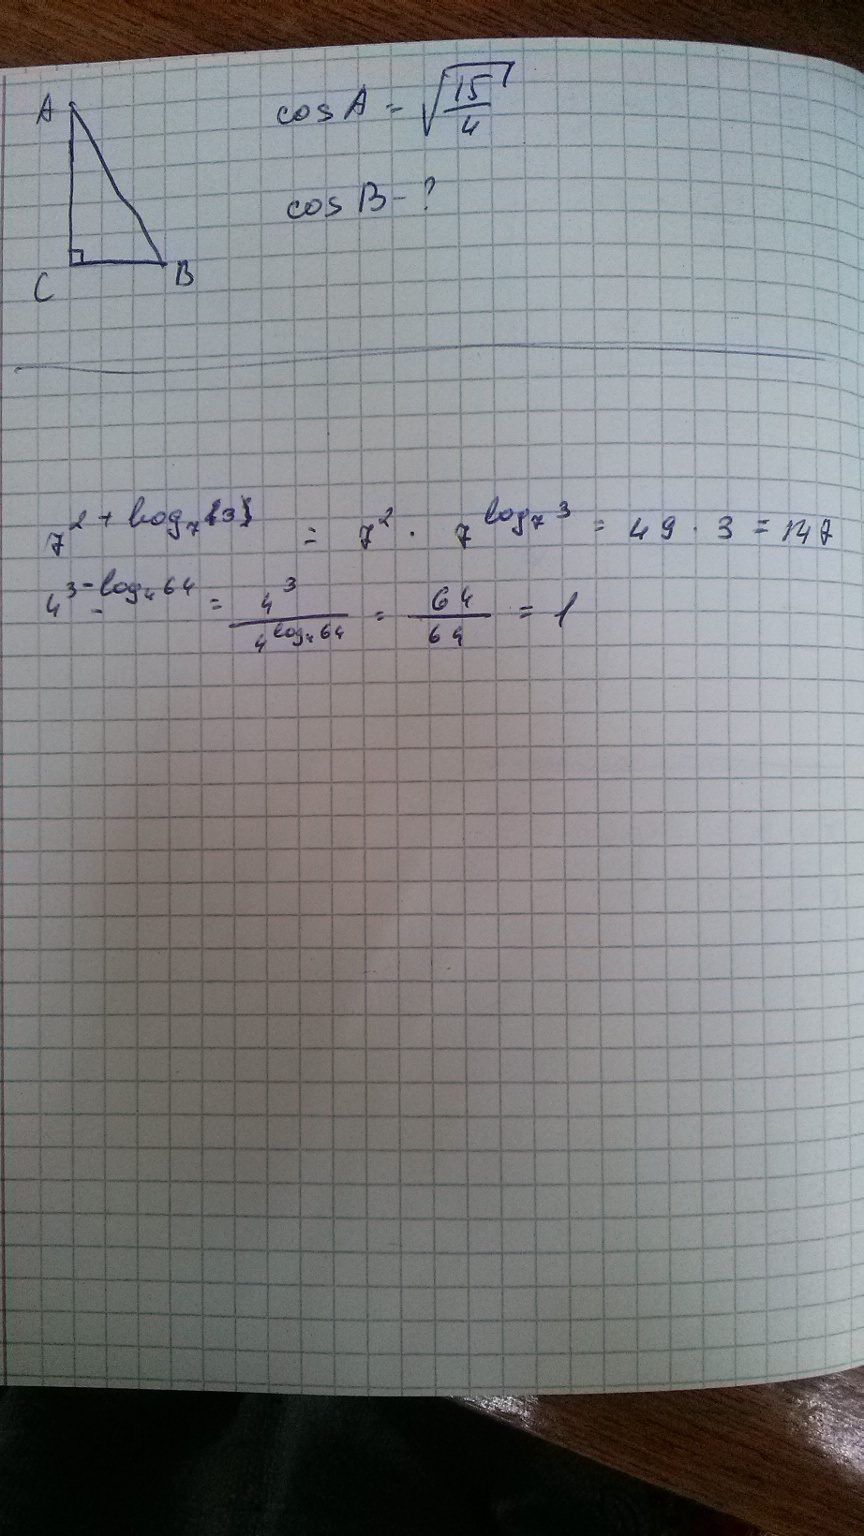 A
cos A = √(15/4)
cos B - ?
C B
7^(2 + log₇{3}) = 7² · 7^(log₇ 3) = 49 · 3 = 147
4^(3 - log₄ 64) = 4³ / 4^(log₄ 64) = 64 / 64 = 1